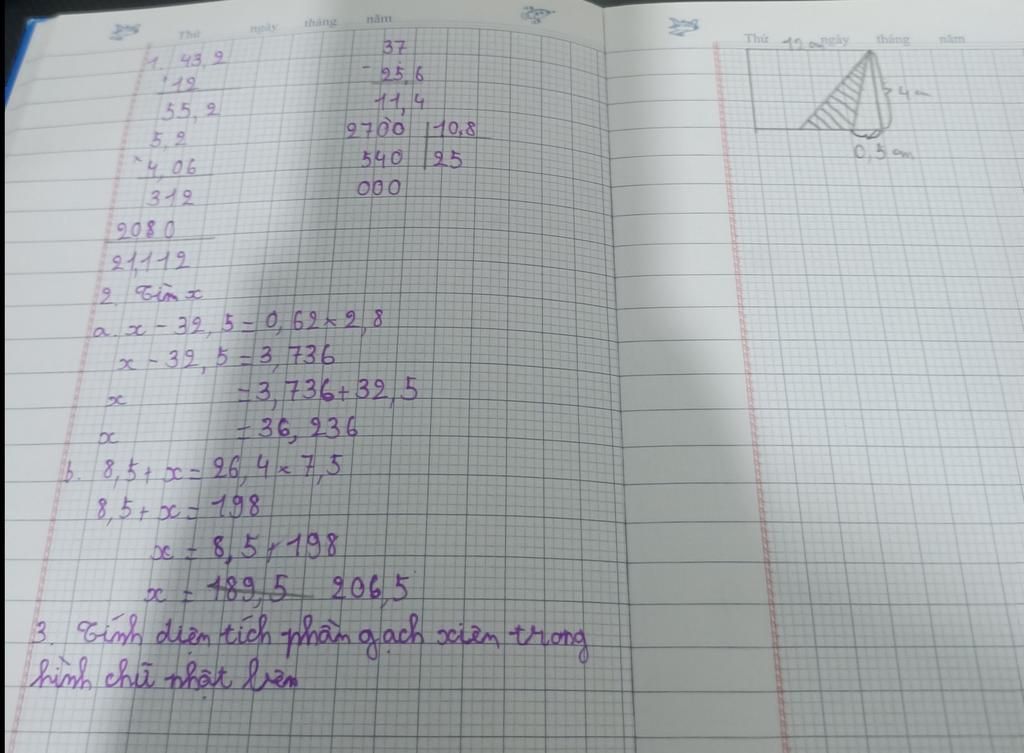 Thứ ngày tháng năm
1. 43,2
+12
55,2
5,2
×4,06
312
2080
21,112
37
- 25,6
11,4
2700 10,8
540 25
000
2. Tìm x
a. x - 32,5 = 0,62 × 2,8
x - 32,5 = 3,736
x = 3,736 + 32,5
x = 36,236
b. 8,5 + x = 26,4 × 7,5
8,5 + x = 198
x = 8,5 + 198
x = 189,5 206,5
3. Tính diện tích phần gạch xiên trong
hình chữ nhật bên
Thứ ngày tháng năm
12 cm
4 cm
0,5 cm